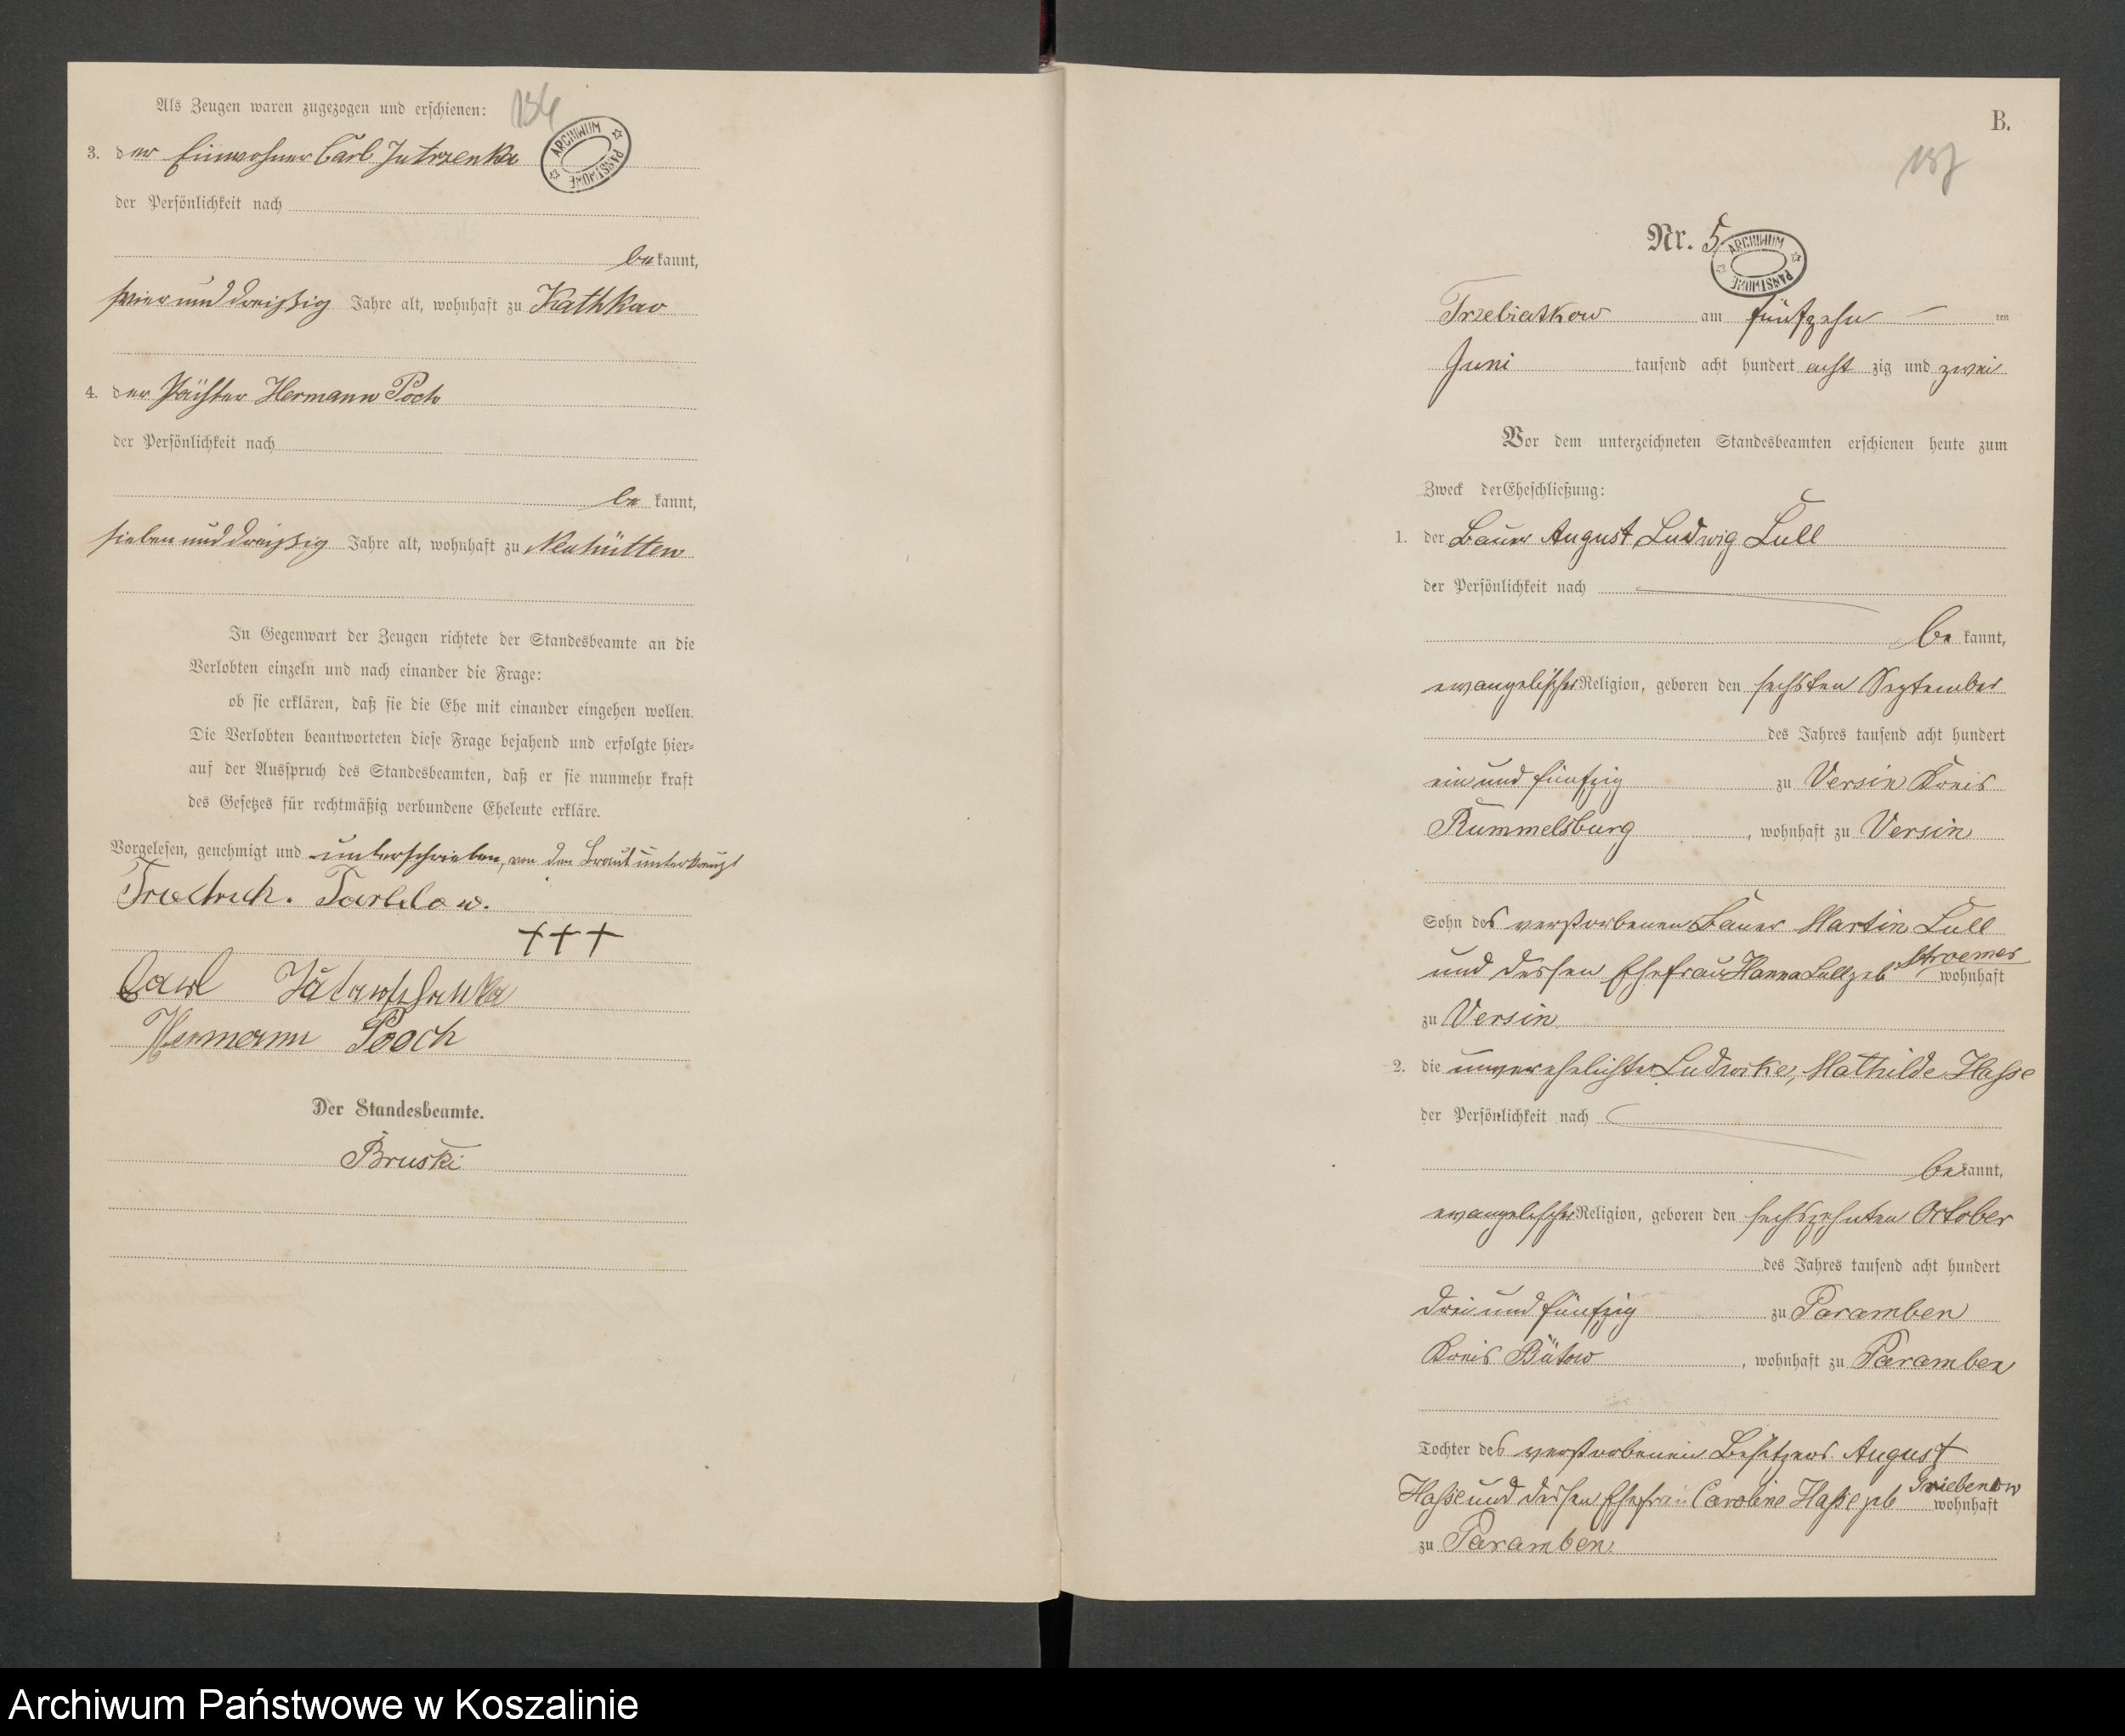 Als Zeugen waren zugezogen und erschienen:
134
ARCHIWUM PAŃSTWOWE
3. der Einwohner Carl Jutrzenka
der Persönlichkeit nach
bekannt,
vier und dreißig Jahre alt, wohnhaft zu Kathkow
4. der Pächter Hermann Poch
der Persönlichkeit nach
be kannt,
sieben und dreißig Jahre alt, wohnhaft zu Neuhütten
In Gegenwart der Zeugen richtete der Standesbeamte an die
Verlobten einzeln und nach einander die Frage:
ob sie erklären, daß sie die Ehe mit einander eingehen wollen.
Die Verlobten beantworteten diese Frage bejahend und erfolgte hier-
auf der Ausspruch des Standesbeamten, daß er sie nunmehr kraft
des Gesetzes für rechtmäßig verbundene Eheleute erkläre.
Vorgelesen, genehmigt und unterschrieben, von der Braut unterkreuzt
+++
Carl
Hermann Pooch
Der Standesbeamte.
Bruski
B.
137
Nr. 5
ARCHIWUM PAŃSTWOWE
Trzebiatkow am fünfzehn ten
Juni tausend acht hundert acht zig und zwei
Vor dem unterzeichneten Standesbeamten erschienen heute zum
Zweck der Eheschließung:
1. der Bauer August Ludwig Lüll
der Persönlichkeit nach
be kannt,
evangelischer Religion, geboren den sechsten September
des Jahres tausend acht hundert
ein und fünfzig zu Versin Kreis
Rummelsburg, wohnhaft zu Versin
Sohn des verstorbenen Bauer Martin Lüll
und dessen Ehefrau Hanna Lüll geb Stroemer wohnhaft
zu Versin
2. die unverehelichte Ludwike, Mathilde Hasse
der Persönlichkeit nach
bekannt,
evangelischer Religion, geboren den sechszehnten October
des Jahres tausend acht hundert
drei und fünfzig zu Paramben
Kreis Bütow, wohnhaft zu Paramben
Tochter des verstorbenen Besitzers August
Hasse und dessen Ehefrau Caroline Hasse geb Griebenow wohnhaft
zu Paramben
Archiwum Państwowe w Koszalinie